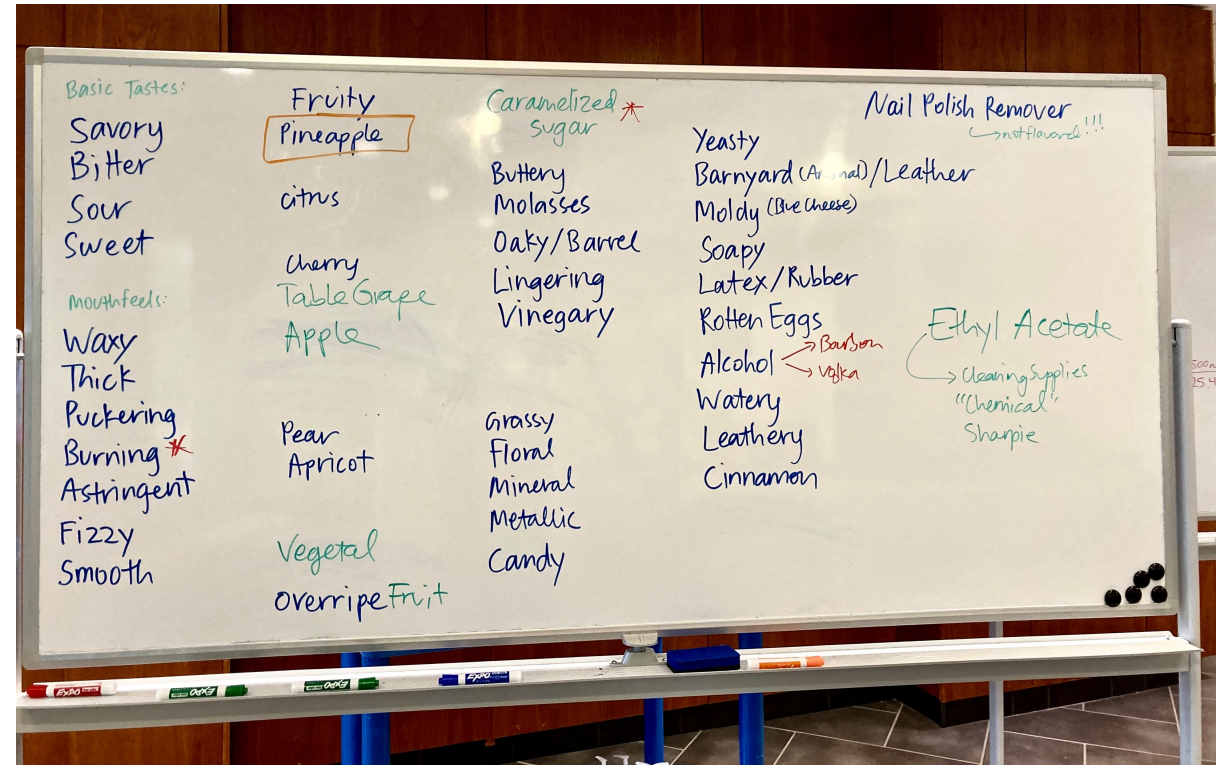 Basic Tastes:
Savory
Bitter
Sour
Sweet
Mouthfeels:
Waxy
Thick
Puckering
Burning *
Astringent
Fizzy
Smooth
Fruity
Pineapple
citrus
Cherry
Table Grape
Apple
Pear
Apricot
Vegetal
Overripe Fruit
Caramelized *
sugar
Buttery
Molasses
Oaky/Barrel
Lingering
Vinegary
Grassy
Floral
Mineral
Metallic
Candy
Yeasty
Barnyard /Leather
Moldy (Blue Cheese)
Soapy
Latex/Rubber
Rotten Eggs
Alcohol
Bourbon
Vodka
Watery
Leathery
Cinnamon
Nail Polish Remover
not flavored!!!
Ethyl Acetate
Cleaning Supplies
"Chemical"
Sharpie
EXPO
EXPO
EXPO
EXPO